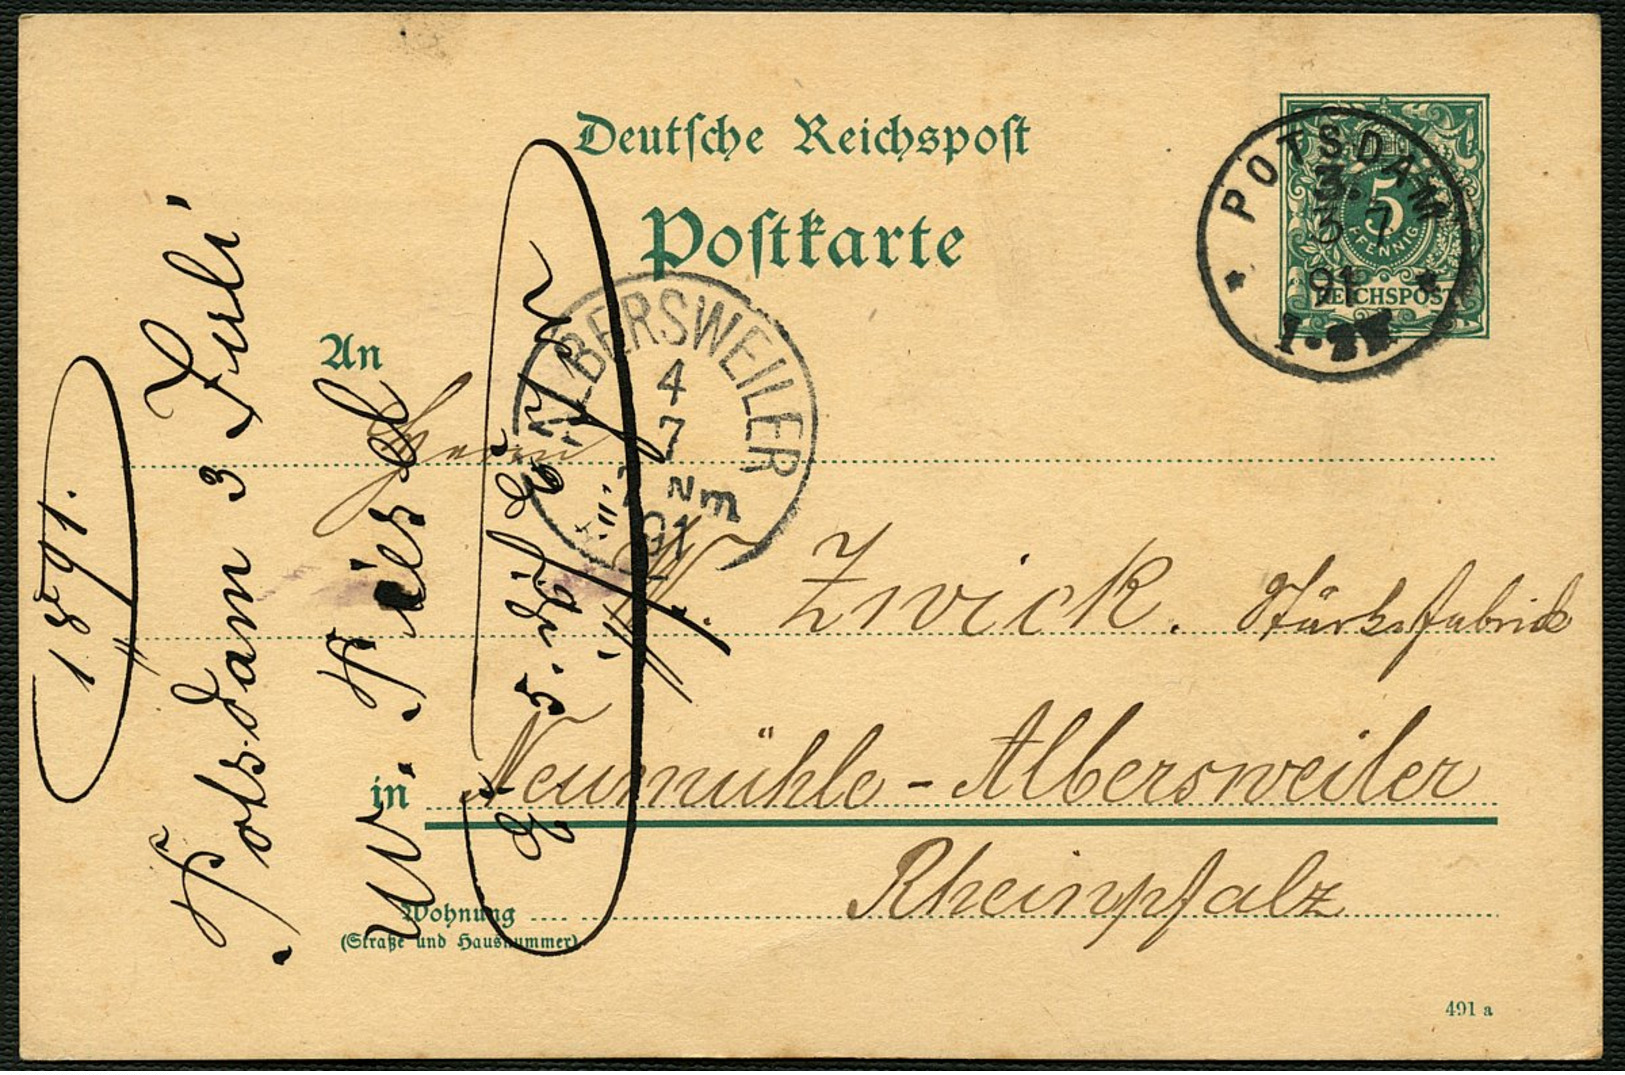 Deutsche Reichspost
Postkarte
POTSDAM
3.
3 7
91
5
PFENNIG
REICHSPOST
ALBERSWEILER
4
7
Nm
91
An
Herrn
Zwick. Stärkefabrick
in Neumühle-Albersweiler
Rheinpfalz
Wohnung
(Straße und Hausnummer)
491 a
1891.
Potsdam 3 Juli
W.